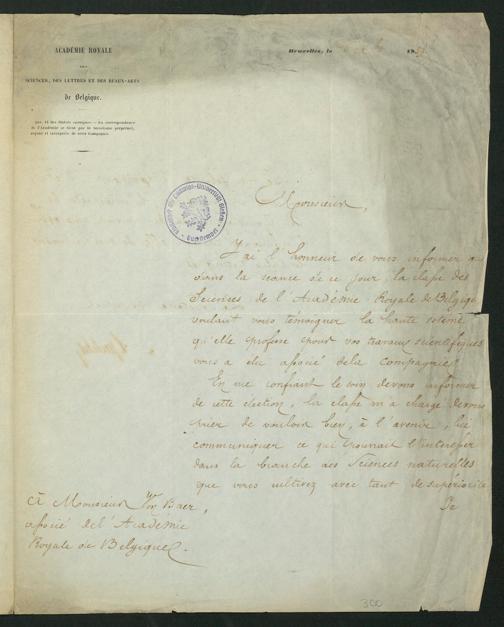 ACADÉMIE ROYALE
DES
SCIENCES, DES LETTRES ET DES BEAUX-ARTS
de Belgique.
Bruxelles, le
Monsieur,
J'ai l'honneur de vous informer que
dans la séance de ce jour, la classe des
Sciences de l'Académie Royale de Belgique
voulant vous témoigner la haute estime
qu'elle professe pour vos travaux scientifiques
vous a élu associé de la Compagnie.
En me confiant le soin de vous informer
de cette élection, la classe m'a chargé de vous
prier de vouloir bien, à l'avenir, lui
communiquer ce qui pourrait l'intéresser
dans la branche des Sciences naturelles
que vous cultivez avec tant de supériorité
Je
à Monsieur Von Baer,
associé de l'Académie
Royale de Belgique.
300